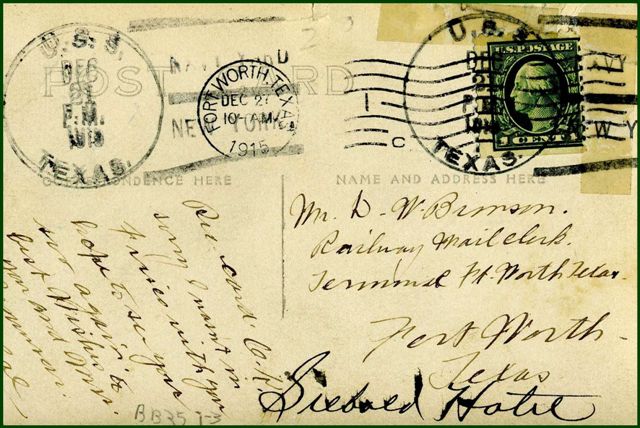 U.S.S.
DEC
21
P.M.
1915
TEXAS.
NAVY YARD
NEW YORK
POST CARD
FORT WORTH, TEXAS
DEC 27
10-AM
1915
1
C
U.S.S.
DEC
21
P.M.
TEXAS.
U.S. POSTAGE
1 CENT 1
NAVY
NEW Y
CORRESPONDENCE HERE
NAME AND ADDRESS HERE
Rec. card. O.K.
sorry I wasn't in
Frisco with you
hope to see you
again.
best Wishes to
you and Mrs.
Mr. D. W. Bronson.
Railway Mail Clerk.
Terminal Ft. Worth Texas.
Fort Worth-
Texas
Siebold Hotel
BB35 T-3